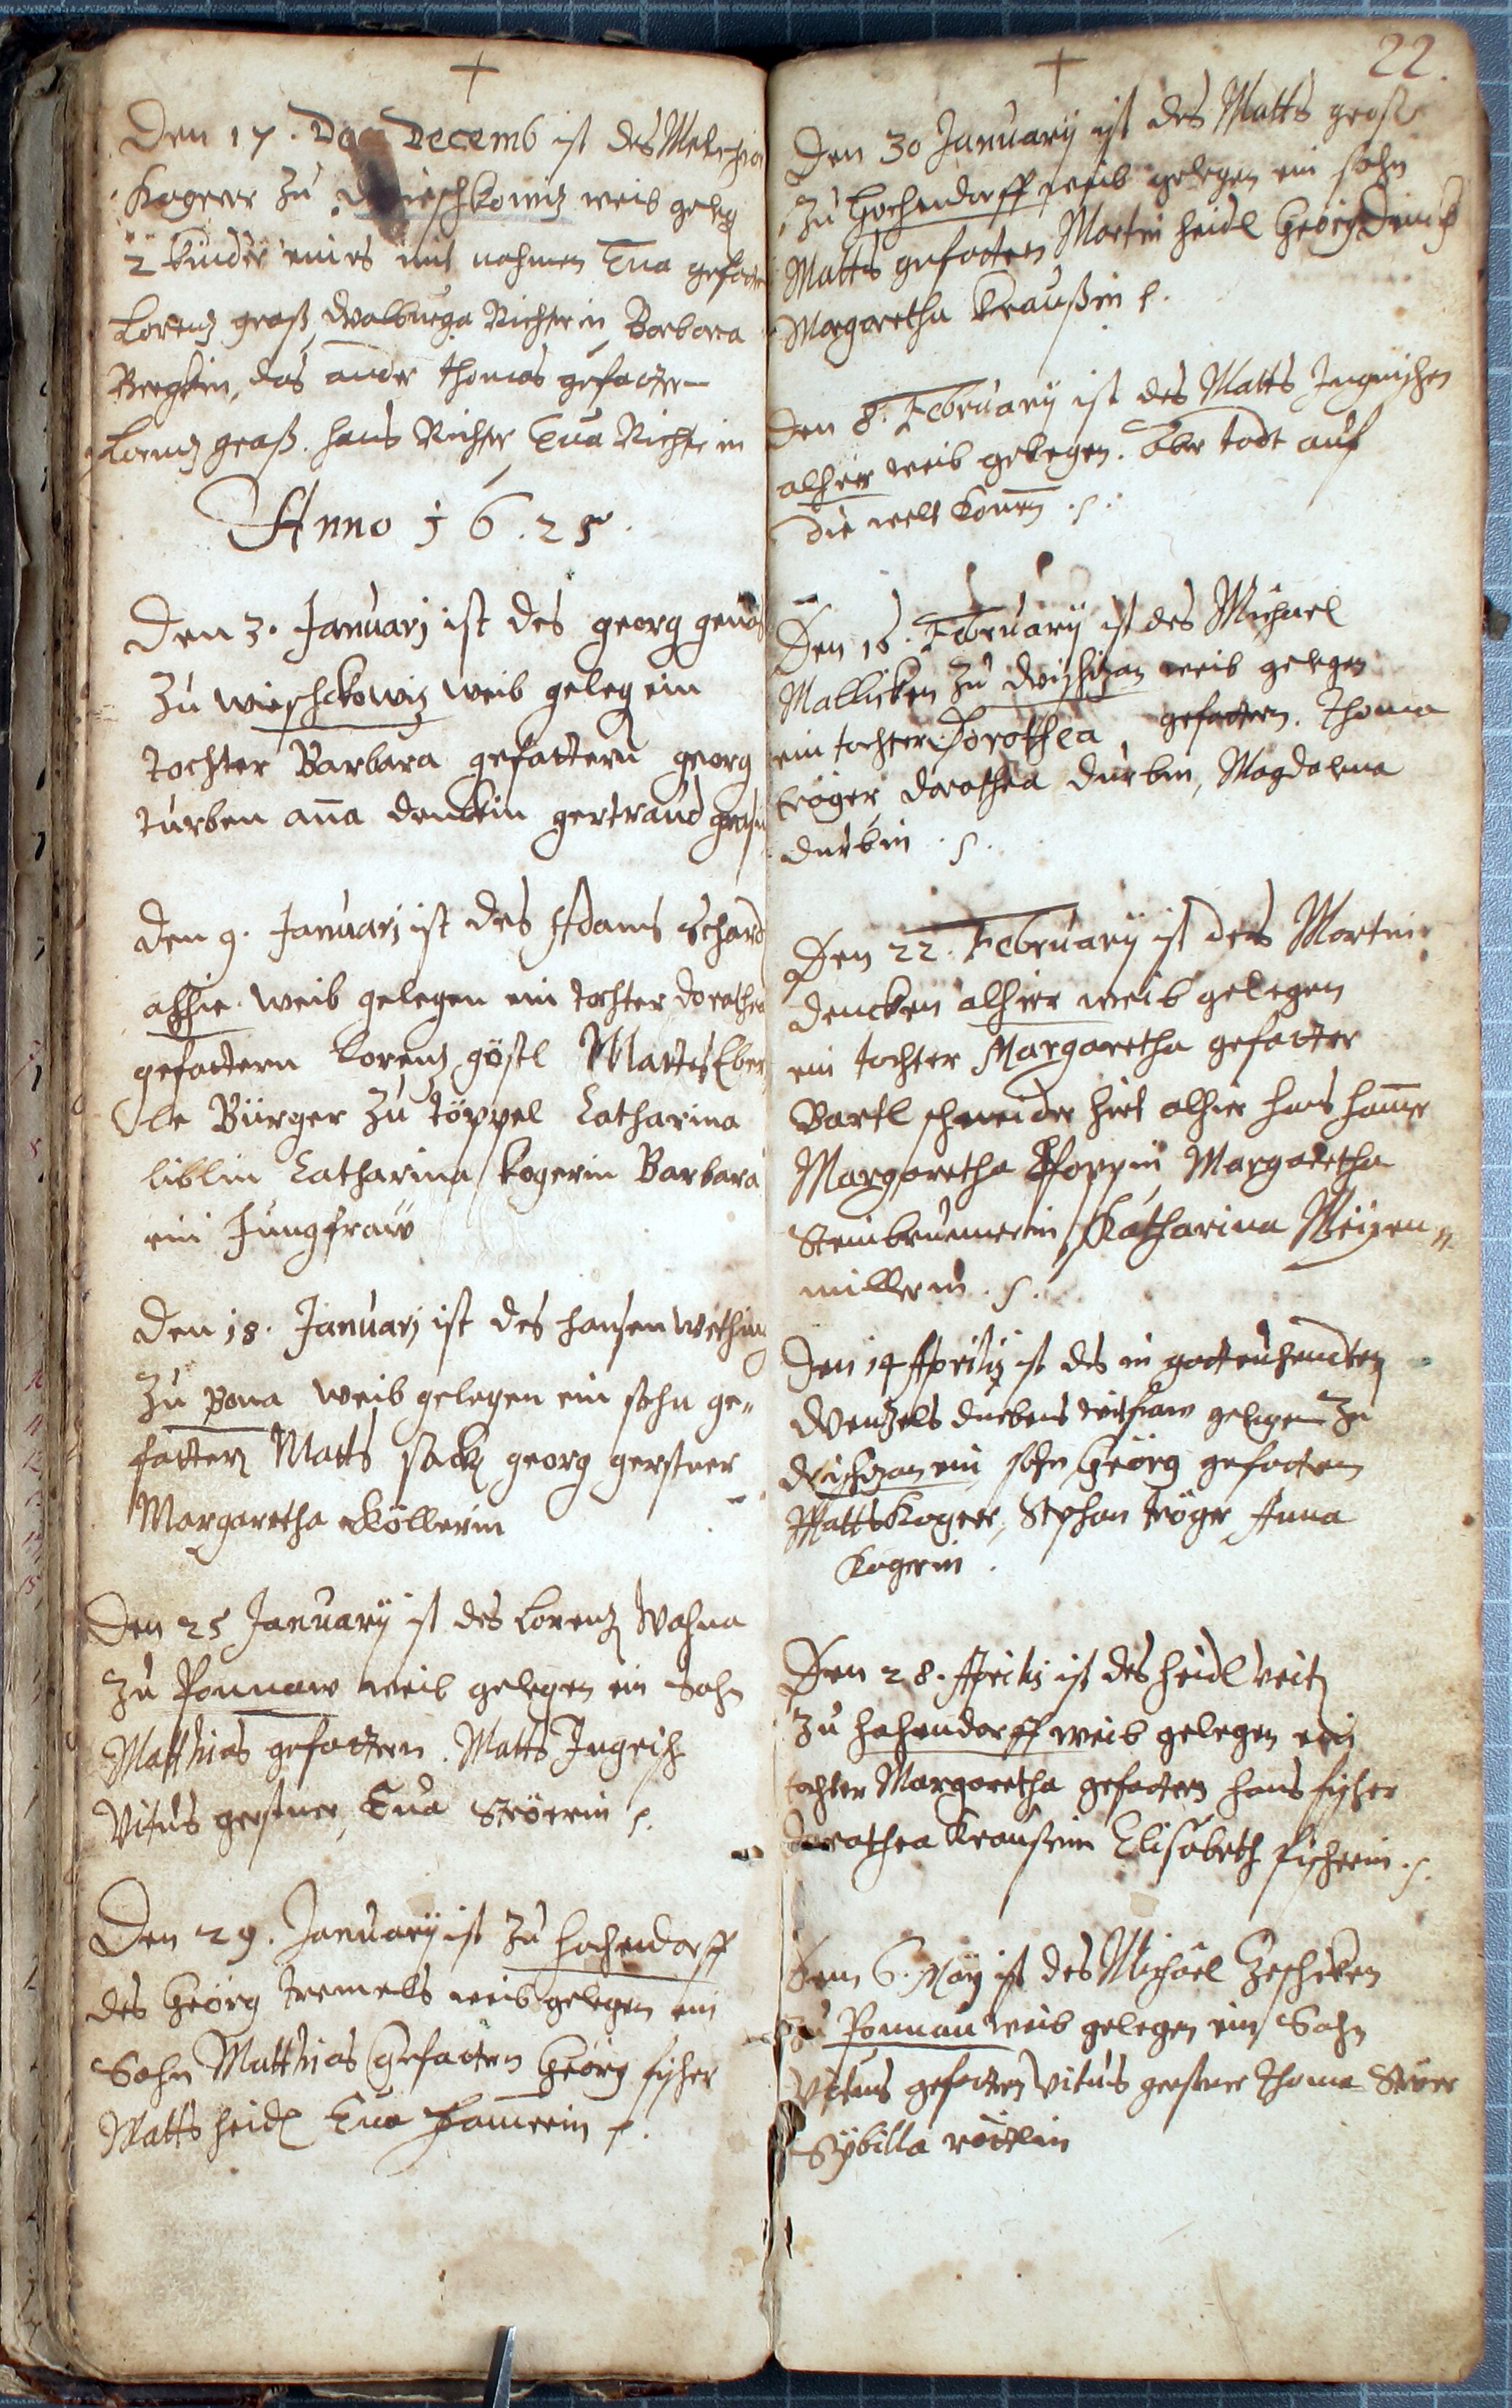 Den 17. Decemb ist des Melchior
Kogerr zu weib geleg
2 kinder eines mit nahmen Eva gefatter
Lorenz graß, Walburga Richterin Barbara
das ander Thomas gefattern
Lorenz graß. hans Richter Eva Richterin
Anno 1625.
Den 3. Januarj ist des georg
Zu wieschkowiz weib geleg ein
tochter Barbara gefattern georg
turben aña denckin gertraud
Den 9. Januarj ist des Adams Schard
alhie. weib gelegen ein tochter dorothea
gefattern Lorenz göstl Matts Eber
le Bürger zu Töppel Catharina
liblin Catharina kogerin Barbara
ein Jungfraw
Den 18. Januarj ist des hansen
zu Pona weib gelegen ein sohn ge=
fattern Matts sack georg gerstner
Margaretha Köllerin
Den 25 Januarÿ ist des Lorenz Wahna
zu Ponnaw weib gelegen ein Sohn
Matthias gefattern. Matts Ingrisch
Vitus gerstner, Eva Ströerin
Den 29. Januarÿ ist zu hochendorff
des Geörg tremels weib gelegen ein
Sohn Matthias Gefattern Geörg fischer
Matts heidl Eva Hamerin
22.
Den 30 Januarÿ ist des Matts graß
zu Hochendorff weib gelegen ein sohn
Matts gefattern Martin heidl Geörg
Margaretha Kraußin
Den 8. Februarÿ ist des Matts Ingrischen
alhier weib gelegen. Aber todt auf
die welt komen
Den 16. Februarÿ ist des Michael
Mallicken zu weib gelegen
ein tochter Dorothea, gefattern. Thoma
tröger dorothea durbin, Magdalena
durbin
Den 22. Februarÿ ist des Martin
dencken alhier weib gelegen
ein tochter Margaretha gefatter
Bartl schneider hirt alhier hans hamer
Margaretha Margaretha
Steinbrunnerin, Katharina Weizen=
millerin
Den 14 Aprilis ist des in gott
Wenzels durbens gelegen zu
ein sohn Geörg gefattern
Matts Kogerr, Stephan tröger Anna
Kogerin.
Den 28. Aprilis ist des heidl veit
zu hohendorff weib gelegen ein
tochter Margaretha gefattern hans fischer
dorothea Kraußin Elisabeth fischerin.
Dem 6. Maÿ ist des Michael
zu Ponnau weib gelegen ein Sohn
Vitus gefattern Vitus gerstner Thoma Ströer
Sÿbilla rödlin